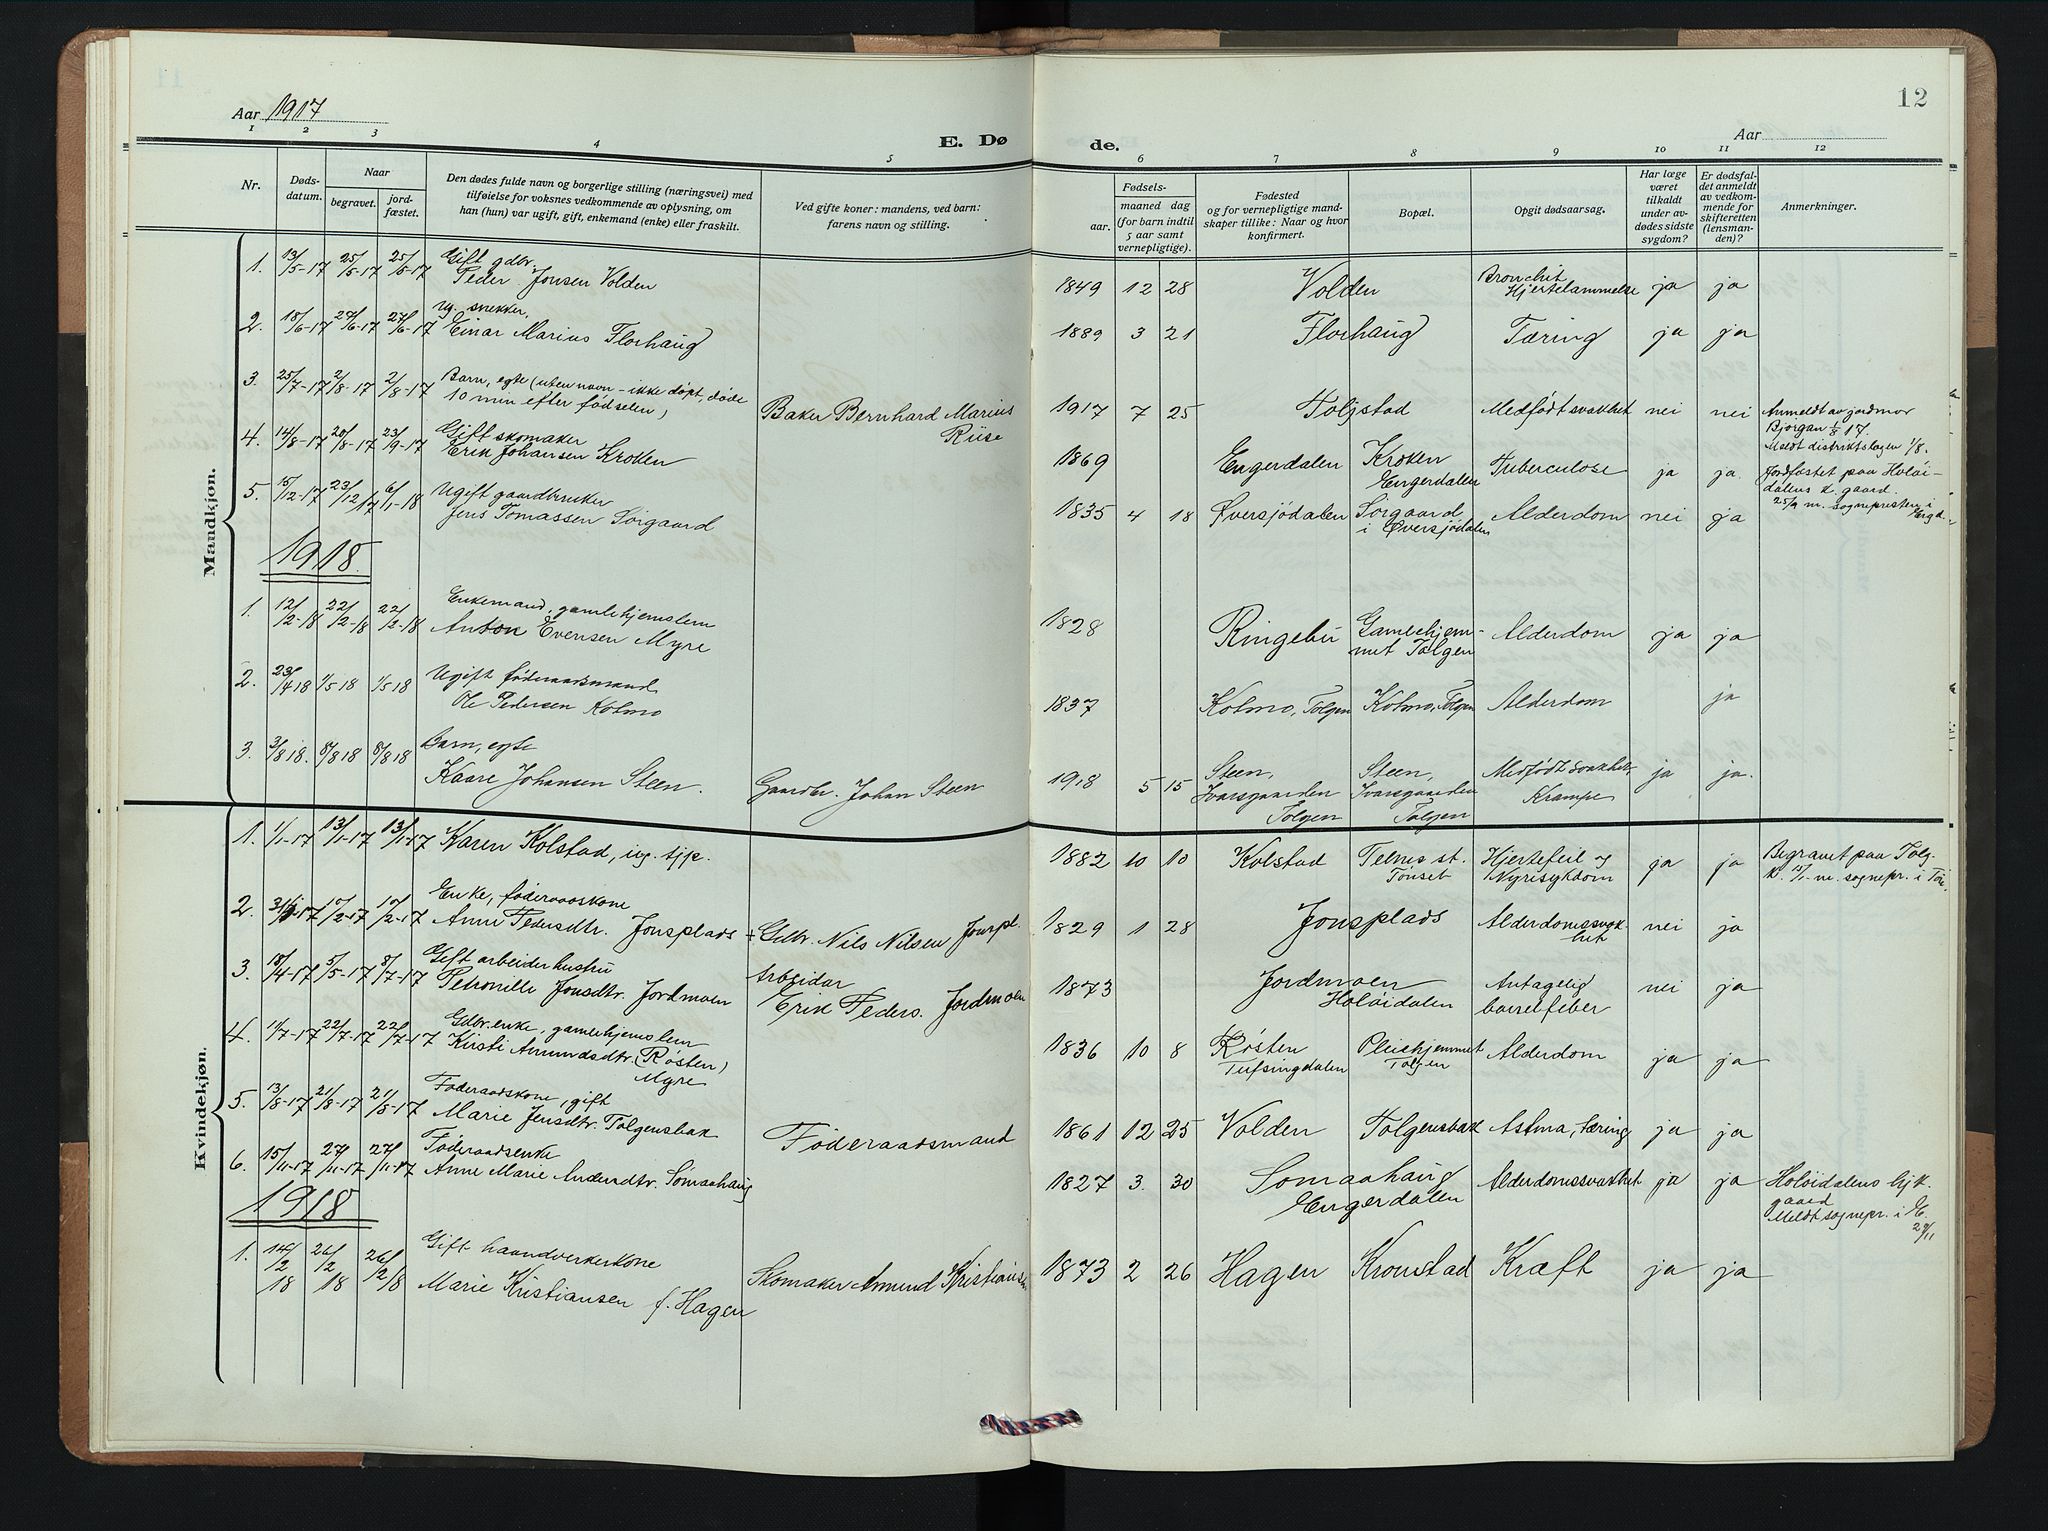 12
Aar 1917
Aar
E. Dø de.
1 2 3 4 5 6 7 8 9 10 11 12
Nr.
Døds-
datum.
Naar
begravet.
jord-
fæstet.
Den dødes fulde navn og borgerlige stilling (næringsvei) med
tilføielse for voksnes vedkommende av oplysning, om
han (hun) var ugift, gift, enkemand (enke) eller fraskilt.
Ved gifte koner: mandens, ved barn:
farens navn og stilling.
Fødsels-
aar. maaned dag
(for barn indtil
5 aar samt
vernepligtige).
Fødested
og for vernepligtige mand-
skaper tillike: Naar og hvor
konfirmert.
Bopæl.
Opgit dødsaarsag.
Har læge
været
tilkaldt
under av-
dødes sidste
sygdom?
Er dødsfal-
det anmeldt
av vedkom-
mende for
skifteretten
(lensman-
den)?
Anmerkninger.
Mandkjøn.
1. 13/5-17 25/5-17 25/5-17 Gift gdbr.
Peder Jonsen Volden 1849 12 28 Volden Bronchit
Hjertelammelse ja ja
2. 18/6-17 27/6-17 27/6-17 Ug. snekker,
Einar Marius Florhaug 1889 3 21 Florhaug Tæring ja ja
3. 25/7-17 2/8-17 2/8-17 Barn, egte (uten navn - ikke døpt, døde
10 min efter fødselen) Baker Bernhard Marius
Riise 1917 7 25 Toljstad Medfødt svakhet nei nei Anmeldt av jordmor
Bjørgan 1/8 17.
Meldt distriktslægen 1/8.
4. 14/8-17 20/8-17 23/9-17 Gift skomaker
Erik Johansen Kroken 1869 Engerdalen Kroken
Engerdalen Tuberculose ja ja. Jordfæstet paa Holøi-
dalens k. gaard.
25/9 m. sognepresten i
Engd.
5. 15/12-17 23/12 17 6/1-18 Ugift gaardbruker
Jens Tomassen Sörgaard 1835 4 18 Øversjödalen Sörgaard
i Øversjödalen Alderdom nei ja
1918.
1. 12/2-18 22/2-18 22/2-18 Enkemand, gamlehjemslem
Anton Evensen Myre 1828 Ringebu Gamlehjem-
met Tolgen Alderdom ja ja
2. 23/4 18 1/5 18 1/5 18 Ugift föderaadsmand
Ole Pedersen Kolmo 1837 Kolmo, Tolgen Kolmo, Tolgen Alderdom ja
3. 3/8 18. 8/8 18 8/8 18 Barn, egte
Kaare Johansen Steen. Gaardbr. Johan Steen 1918 5 15 Steen,
Ivarsgaarden
Tolgen Steen,
Ivarsgaarden
Tolgen Medfödt svakhet,
Krampe ja ja.
Kvindekjøn.
1. 1/1-17 13/1-17 13/1-17 Karen Kolstad, ug. tjp. 1882 10 10 Kolstad Telnes st.
Tönset Hjertefeil og
Nyresykdom ja ja Begravet paa Tolg.
k. 13/1- m. sognepr. i Tön.
2. 31/1-17 10/2-17 10/2-17 Enke, føderaadskone
Anne Pedersdtr. Jonsplads + Gdbr. Nils Nilsen Jonspl. 1829 1 28 Jonsplads Alderdomssvak-
het nei ja
3. 18/4-17 5/5-17 8/7-17 Gift arbeiderhustru
Petronille Jonsdtr. Jordmoen Arbeider
Erik Peders. Jordmoen 1873 Jordmoen
Holøidalen Antagelig
barselfeber nei ja
4. 11/7-17 22/7-17 22/7-17 Gdbr.enke, gamlehjemslem
Kirsti Amundsdtr. (Røsten)
Myre 1836 10 8 Røsten
Tufsingdalen Pleiehjemmet
Tolgen Alderdom ja ja
5. 13/8-17 21/8-17 21/8-17 Føderaadskone, gift
Marie Jensdtr. Tolgensbak Føderaadsmand 1861 12 25 Volden Tolgensbak Astma, tæring ja ja
6. 15/11-17 27/11-17 27/11-17 Føderaadsenke
Anne Marie Andersdtr. Sømaahaug 1827 3. 30 Sømaahaug
Engerdalen Alderdomssvakhet ja ja Holøidalens hjk.
gaard
Meldt sognepr. i E.
29/11
1918
1. 14/2 18 26/2 18 26/2 18 Gift haandverkerkone
Marie Kristiansen f. Hagen Skomaker Amund Kristiansen 1873 2 26 Hagen Kronstad Kræft ja ja